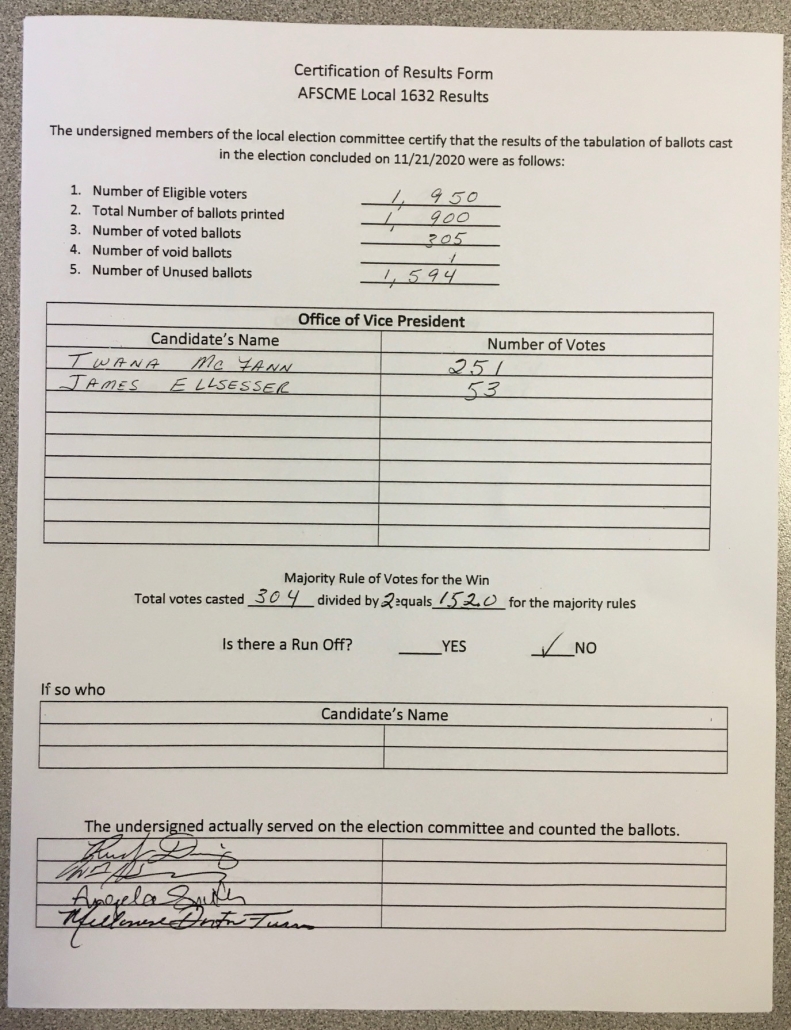 Certification of Results Form
AFSCME Local 1632 Results
The undersigned members of the local election committee certify that the results of the tabulation of ballots cast
in the election concluded on 11/21/2020 were as follows:
1. Number of Eligible voters 1,950
2. Total Number of ballots printed 1,900
3. Number of voted ballots 305
4. Number of void ballots 1
5. Number of Unused ballots 1,594
Office of Vice President
Candidate's Name Number of Votes
TWANA 251
JAMES ELLSESSER 53
Majority Rule of Votes for the Win
Total votes casted 304 divided by 2 equals 152.0 for the majority rules
Is there a Run Off? ____YES ✓ NO
If so who
Candidate's Name
The undersigned actually served on the election committee and counted the ballots.
Angela Smith